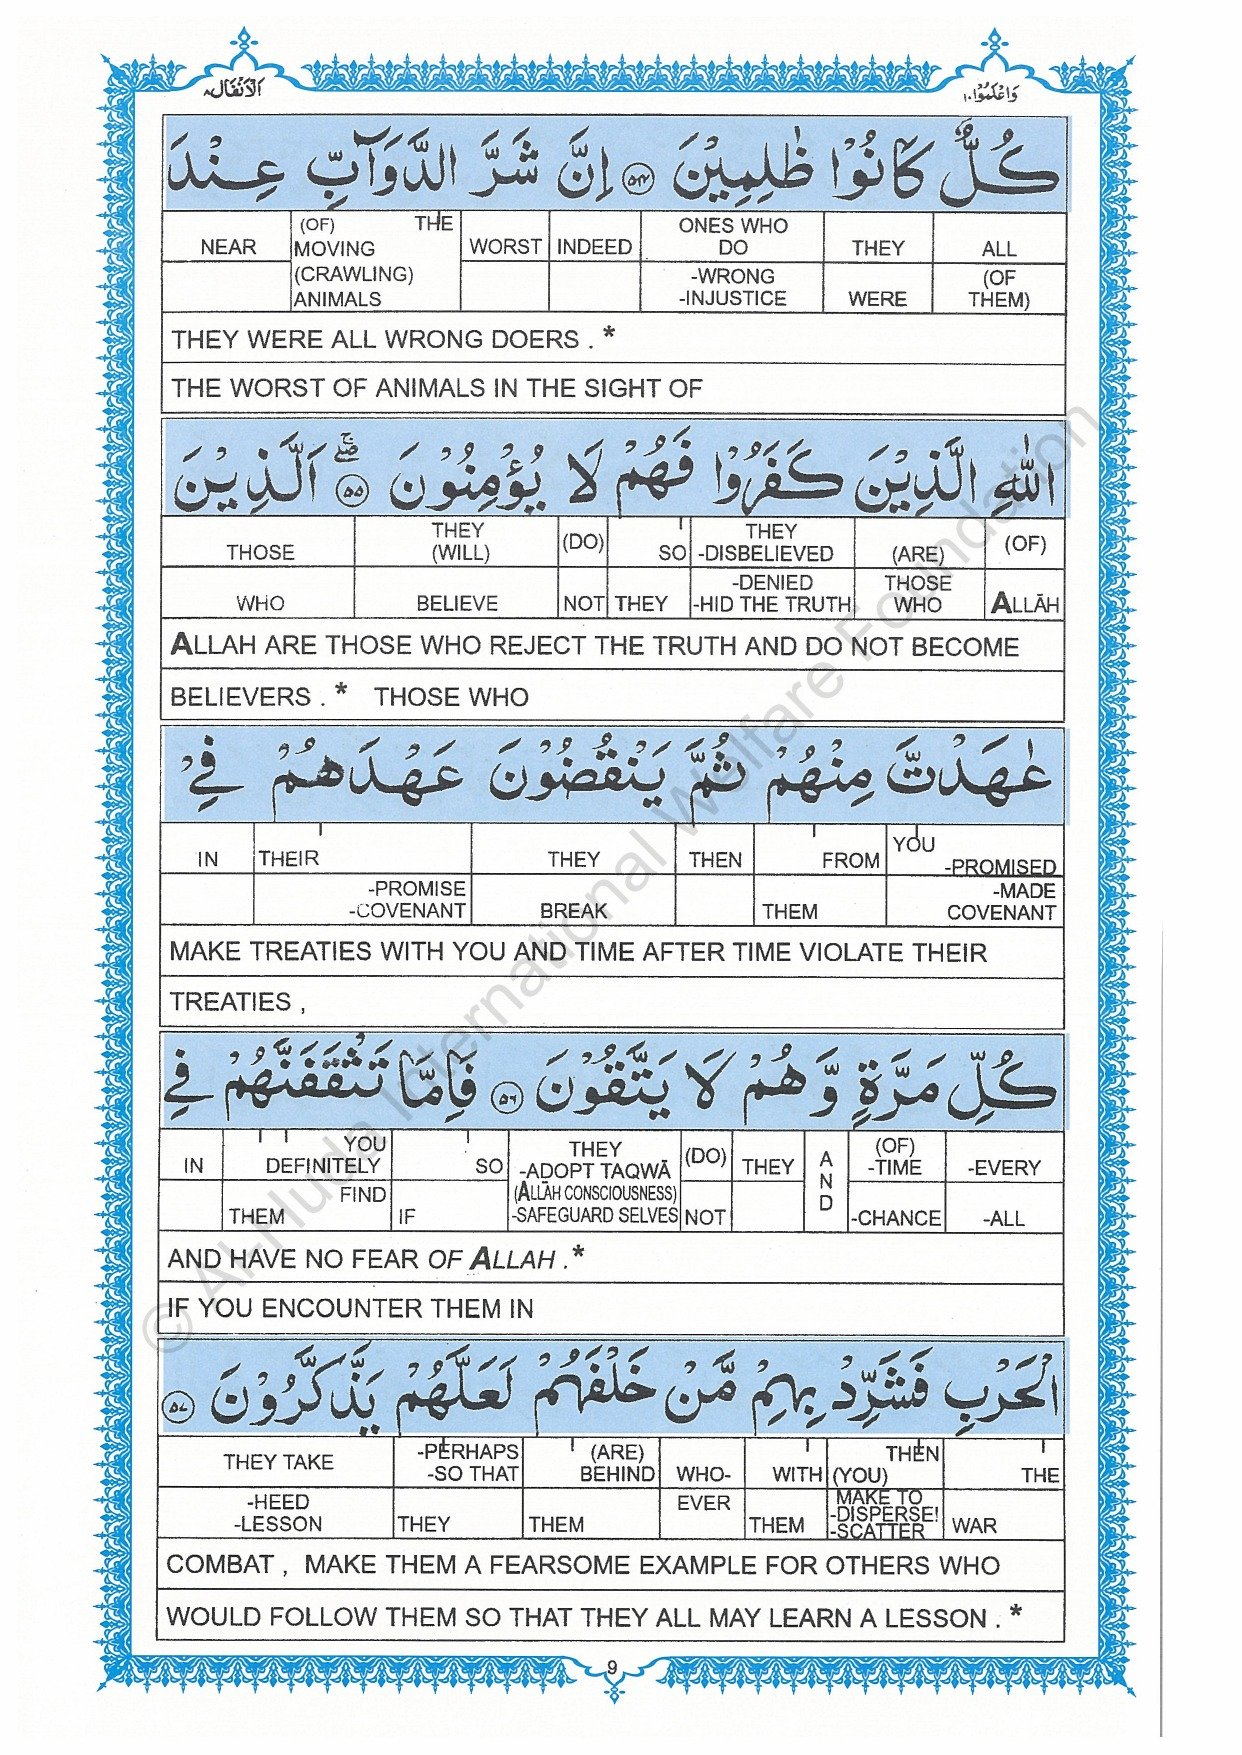 اَلْاَنْفَال ٨
وَاعْلَمُوْا ١٠
كُلٌّ كَانُوْا ظٰلِمِيْنَ ﴿٥٤﴾ اِنَّ شَرَّ الدَّوَآبِّ عِنْدَ
NEAR (OF) THE WORST INDEED ONES WHO THEY ALL
MOVING DO
(CRAWLING) -WRONG (OF
ANIMALS -INJUSTICE WERE THEM)
THEY WERE ALL WRONG DOERS . *
THE WORST OF ANIMALS IN THE SIGHT OF
اللّٰهِ الَّذِيْنَ كَفَرُوْا فَهُمْ لَا يُؤْمِنُوْنَ ﴿٥٥﴾ اَلَّذِيْنَ
THOSE THEY (DO) SO THEY (ARE) (OF)
(WILL) -DISBELIEVED
WHO BELIEVE NOT THEY -DENIED THOSE ALLĀH
-HID THE TRUTH WHO
ALLAH ARE THOSE WHO REJECT THE TRUTH AND DO NOT BECOME
BELIEVERS . * THOSE WHO
عٰهَدْتَّ مِنْهُمْ ثُمَّ يَنْقُضُوْنَ عَهْدَهُمْ فِيْ
IN THEIR THEY THEN FROM YOU
-PROMISED
-PROMISE -MADE
-COVENANT BREAK THEM COVENANT
MAKE TREATIES WITH YOU AND TIME AFTER TIME VIOLATE THEIR
TREATIES ,
كُلِّ مَرَّةٍ وَّهُمْ لَا يَتَّقُوْنَ ﴿٥٦﴾ فَاِمَّا تَثْقَفَنَّهُمْ فِي
IN YOU SO THEY (DO) THEY AND (OF) -EVERY
DEFINITELY -ADOPT TAQWĀ -TIME
FIND (ALLĀH CONSCIOUSNESS)
THEM IF -SAFEGUARD SELVES NOT -CHANCE -ALL
AND HAVE NO FEAR OF ALLAH .*
IF YOU ENCOUNTER THEM IN
الْحَرْبِ فَشَرِّدْ بِهِمْ مَّنْ خَلْفَهُمْ لَعَلَّهُمْ يَذَّكَّرُوْنَ ﴿٥٧﴾
THEY TAKE -PERHAPS (ARE) WHO- WITH THEN THE
-SO THAT BEHIND (YOU)
-HEED EVER MAKE TO
-LESSON THEY THEM THEM -DISPERSE! WAR
-SCATTER
COMBAT , MAKE THEM A FEARSOME EXAMPLE FOR OTHERS WHO
WOULD FOLLOW THEM SO THAT THEY ALL MAY LEARN A LESSON . *
9
© Al-Huda International Welfare Foundation